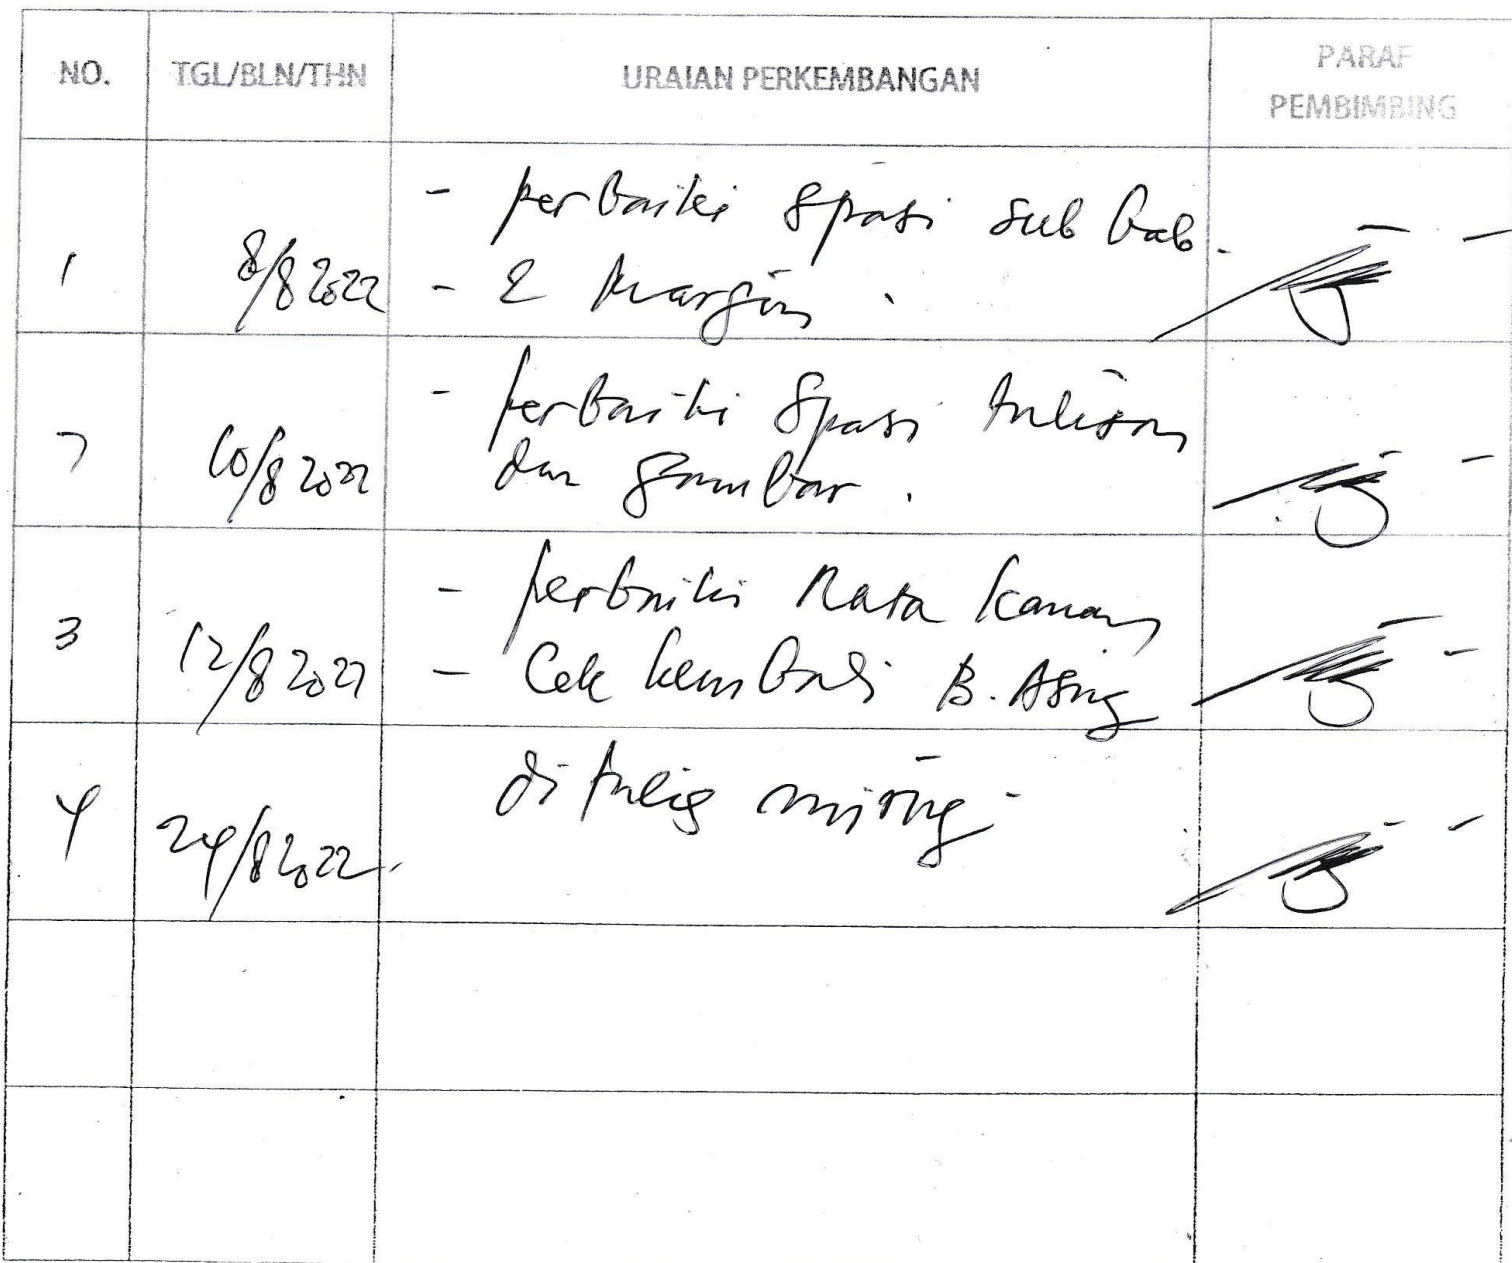 NO. TGL/BLN/THN URAIAN PERKEMBANGAN PARAF PEMBIMBING
1 8/8 2022 - perbaiki spasi sub bab.
- & Margin.
2 10/8 2022 - perbaiki spasi tulisan
dan gambar.
3 12/8 2022 - perbaiki Rata kanan
- Cek kembali B. Asing
4 24/8 2022. di tulis miring